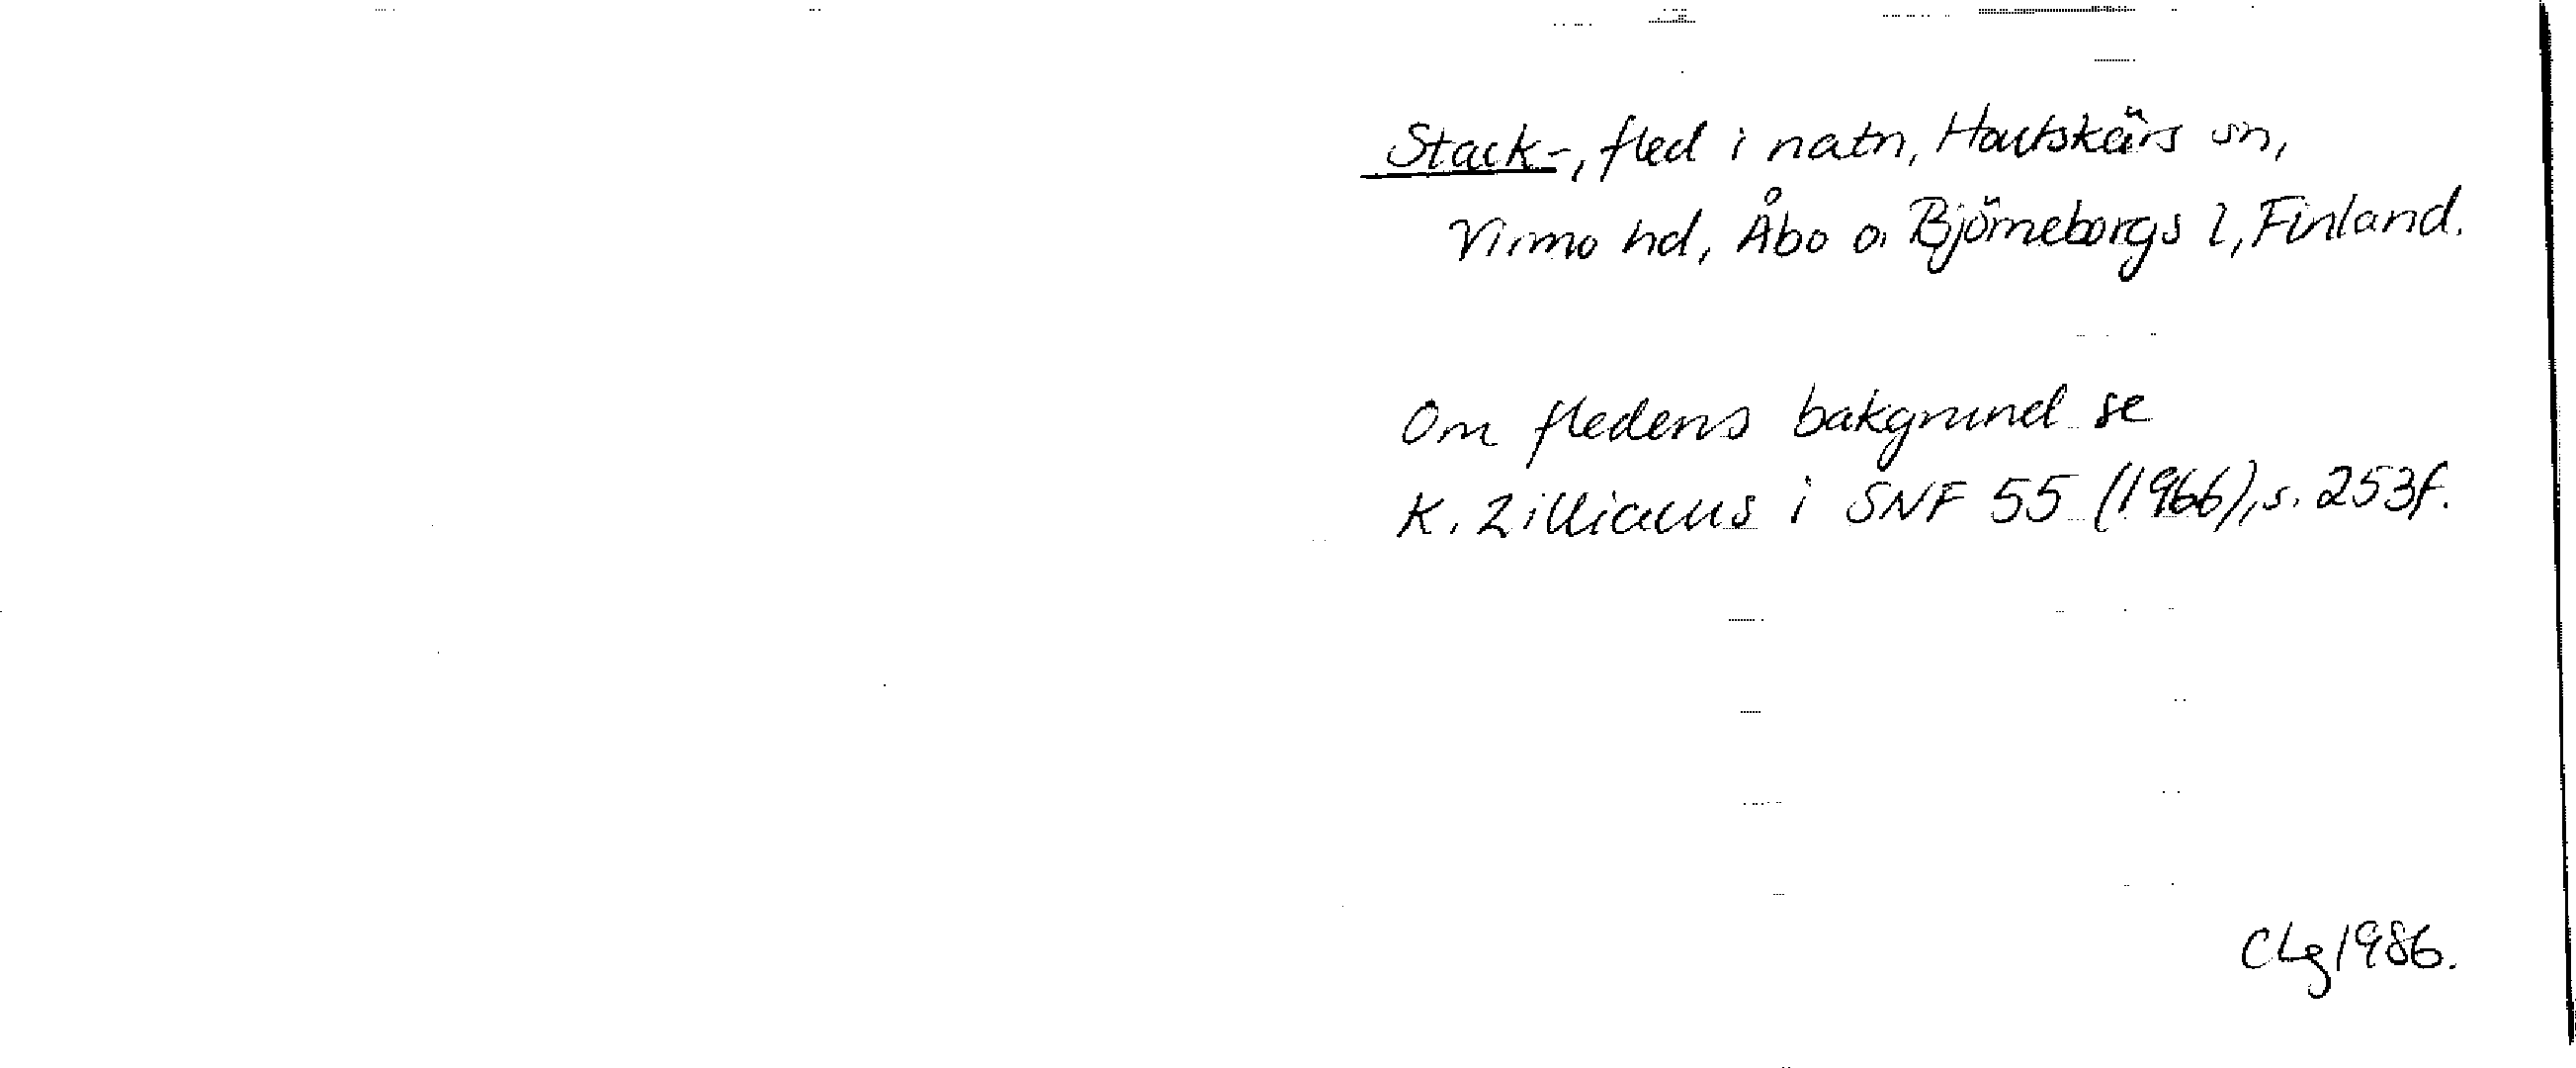 Stack-, fled i natn, Houtskärs sn,
Virmo hd, Åbo o. Björneborgs l, Finland.
Om fledens bakgrund se
K. Zilliacus i SNF 55 (1966), s. 253f.
CLg 1986.